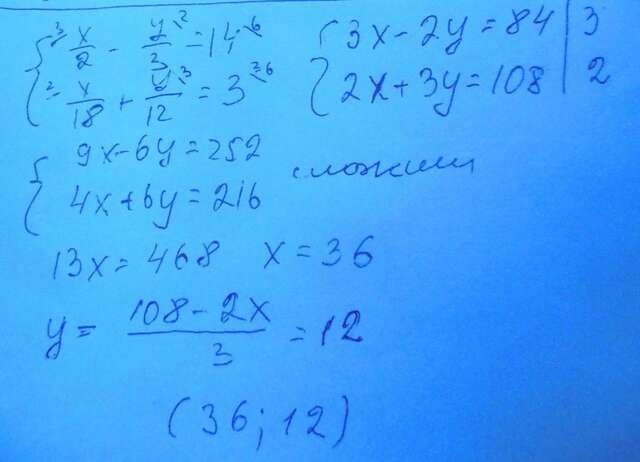 { ³x/2 - y²/3 = 14·⁶
{ ²x/18 + y³/12 = 3³⁶
{ 3x - 2y = 84 | 3
{ 2x + 3y = 108 | 2
{ 9x - 6y = 252
{ 4x + 6y = 216
сложили
13x = 468 x = 36
y = (108 - 2x)/3 = 12
(36; 12)